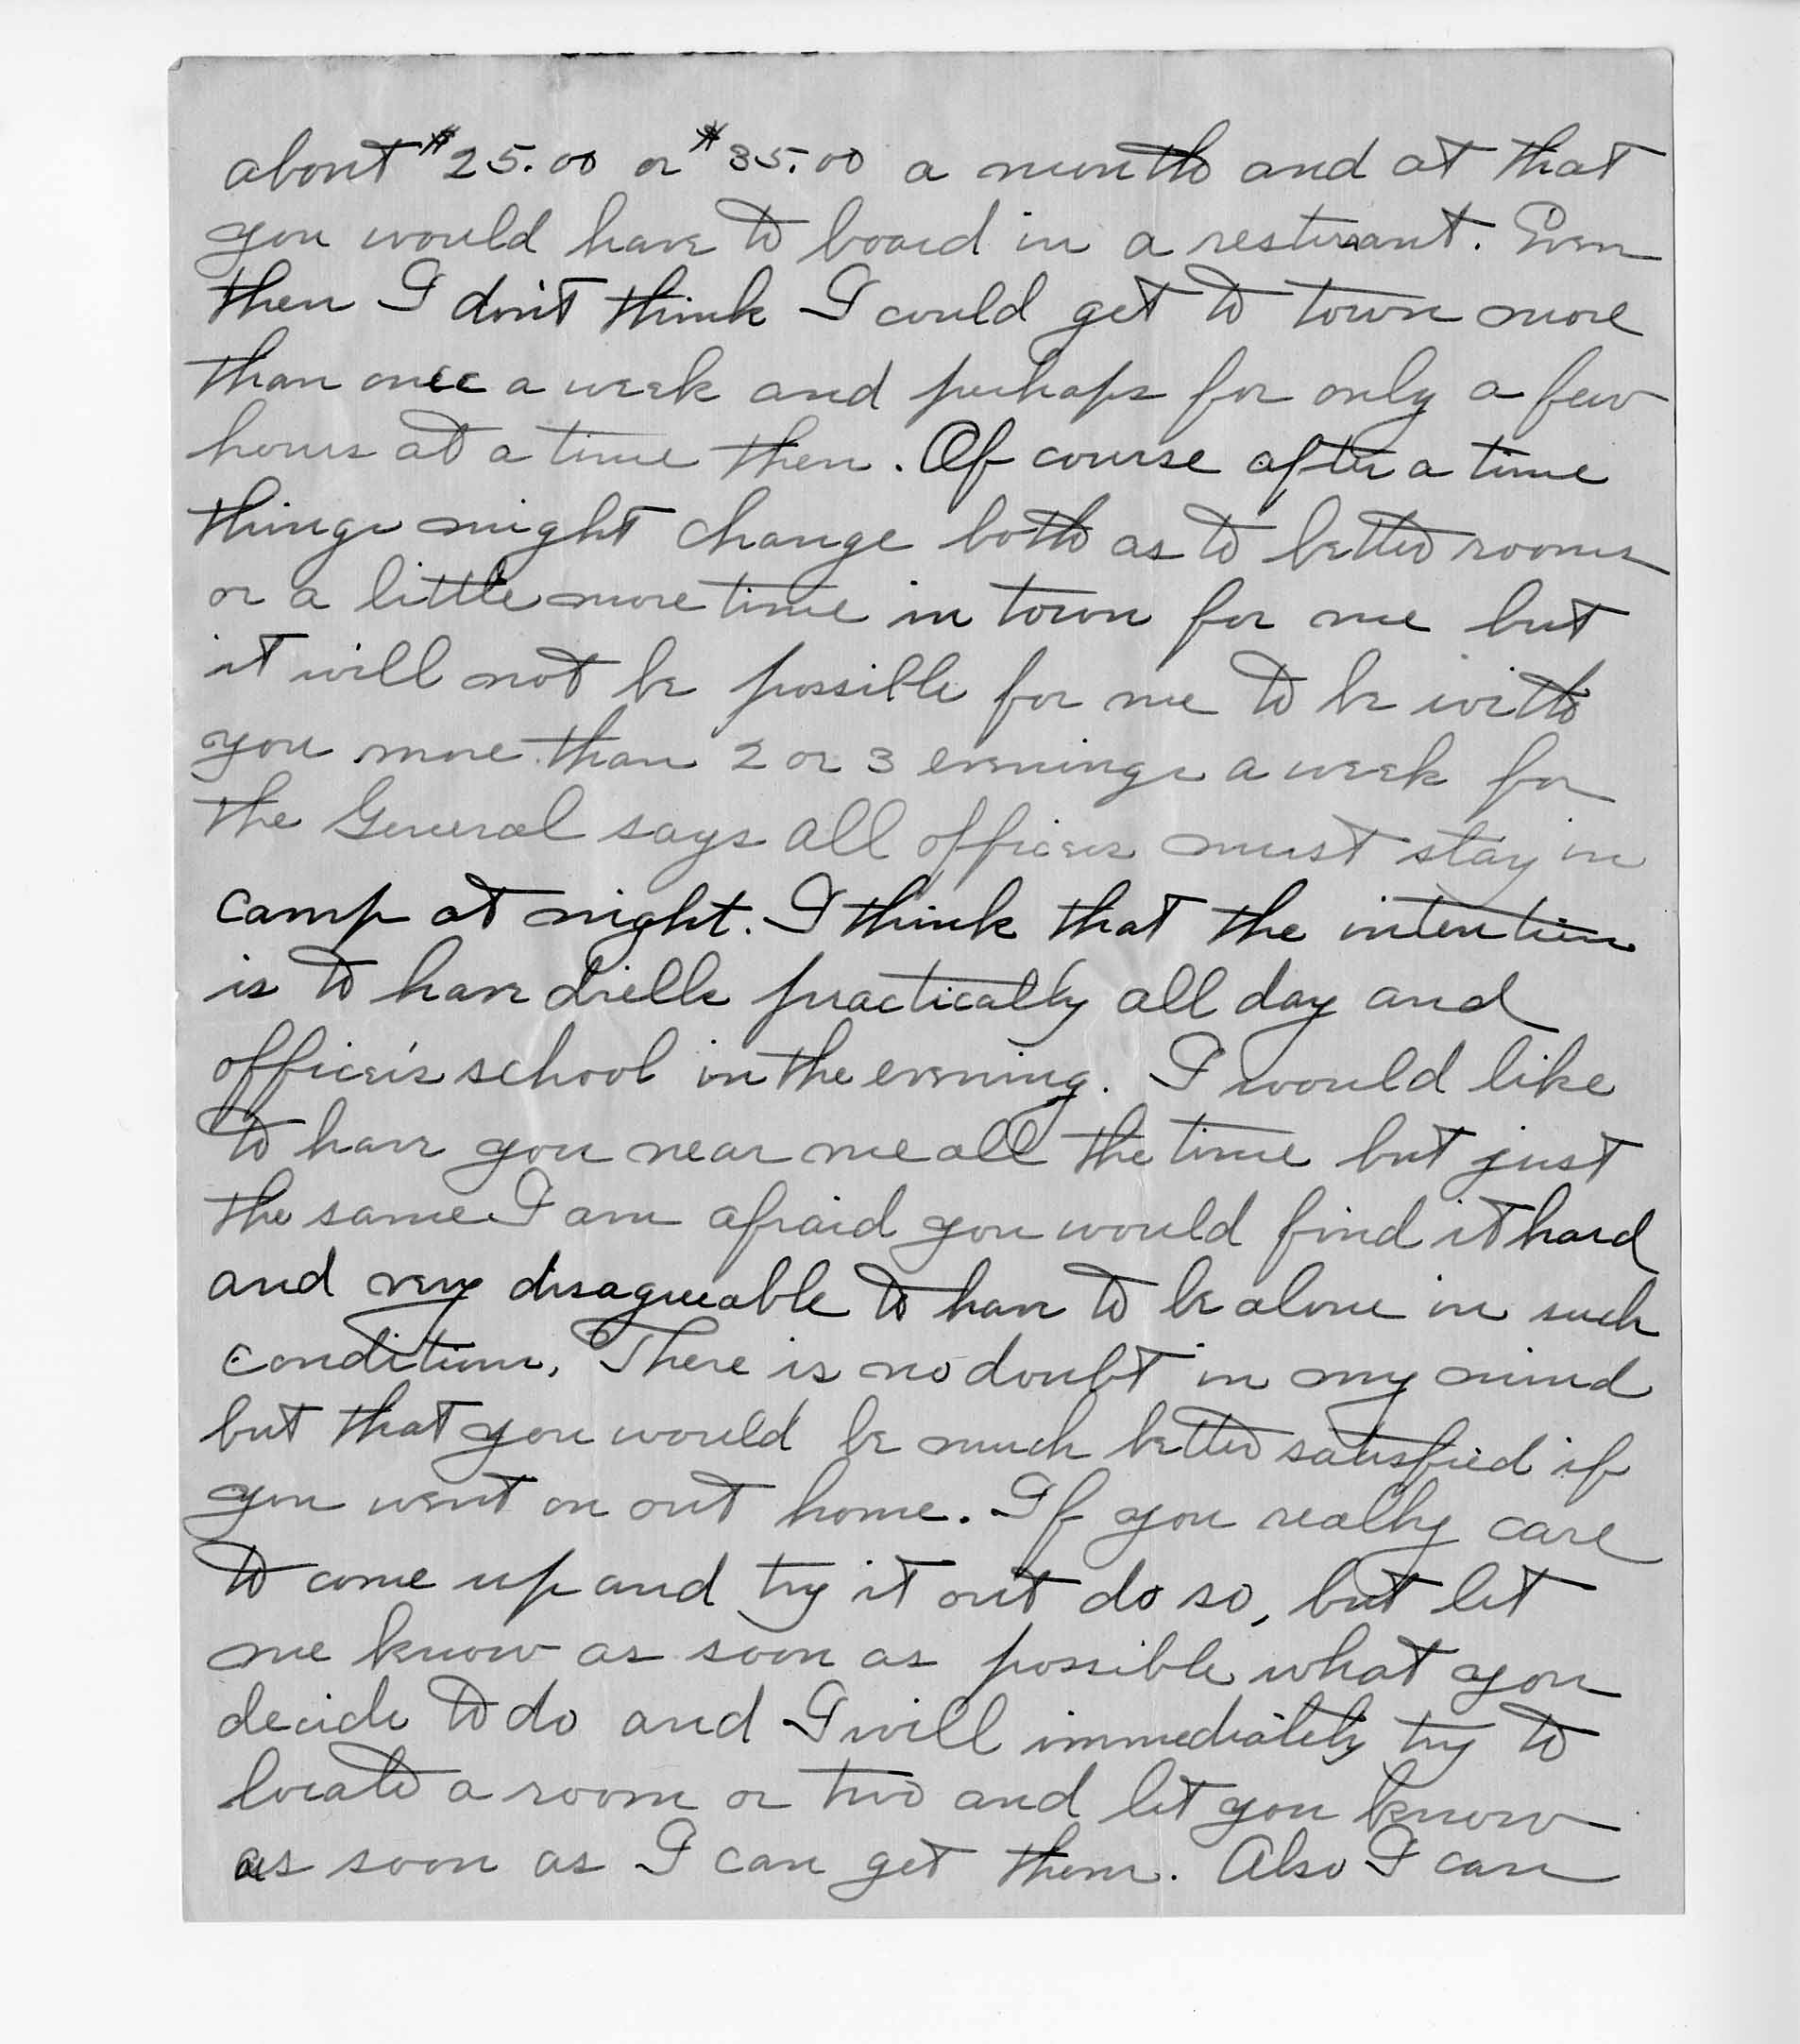 about $25.00 or $35.00 a month and at that
you would have to board in a resturant. Even
then I don't think I could get to town more
than once a week and perhaps for only a few
hours at a time then. Of course after a time
things might change both as to better rooms
or a little more time in town for me but
it will not be possible for me to be with
you more than 2 or 3 evenings a week for
the General says all officers must stay in
camp at night. I think that the intention
is to have drills practically all day and
officer's school in the evening. I would like
to have you near me all the time but just
the same I am afraid you would find it hard
and very disagreeable to have to be alone in such
conditions. There is no doubt in my mind
but that you would be much better satisfied if
you went on out home. If you really care
to come up and try it out do so, but let
me know as soon as possible what you
decide to do and I will immediately try to
locate a room or two and let you know
as soon as I can get them. Also I can